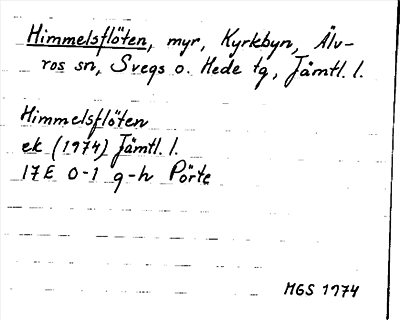 Himmelsflöten, myr, Kyrkbyn, Älv-
ros sn, Svegs o. Hede tg, Jämtl. l.
Himmelsflöten
ek (1974) Jämtl. l.
17E 0-1 g-h Pörte
MGS 1974